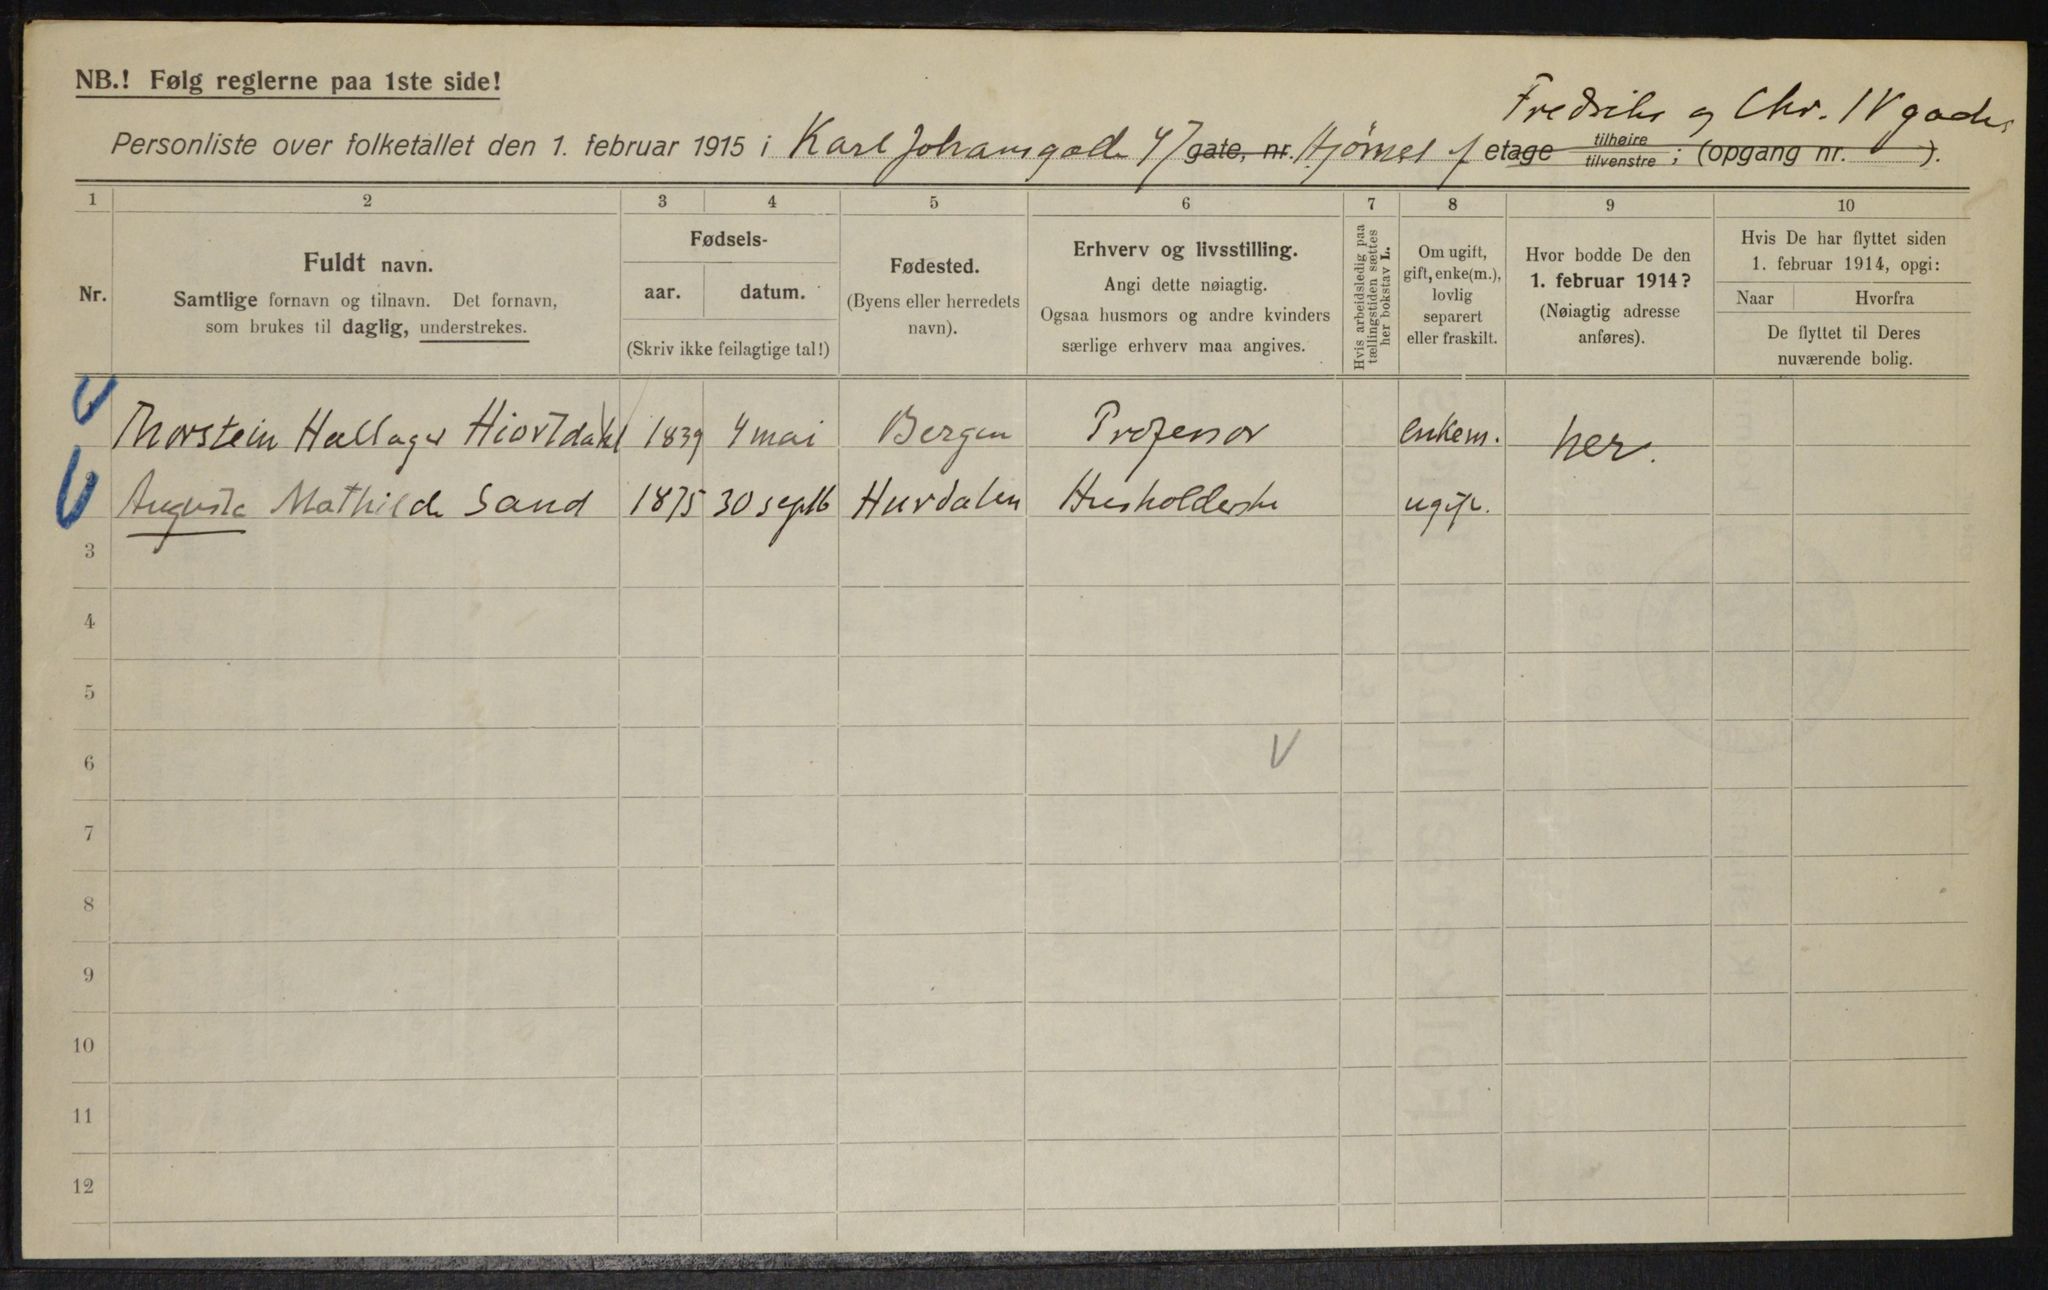 NB.! Følg reglerne paa 1ste side!
Fredriks og Chr. IV gades
Personliste over folketallet den 1. februar 1915 i Karl Johansgade 47 gate, nr. Hjørnet af etage tilhøire tilvenstre ; (opgang nr. ).
1 2 3 4 5 6 7 8 9 10
Nr.
Fuldt navn.
Samtlige fornavn og tilnavn. Det fornavn,
som brukes til daglig, understrekes.
Fødsels-
aar. datum.
(Skriv ikke feilagtige tal!)
Fødested.
(Byens eller herredets
navn).
Erhverv og livsstilling.
Angi dette nøiagtig.
Ogsaa husmors og andre kvinders
særlige erhverv maa angives.
Hvis arbeidsledig paa
tællingstiden sættes
her bokstav L.
Om ugift,
gift, enke(m.),
lovlig
separert
eller fraskilt.
Hvor bodde De den
1. februar 1914?
(Nøiagtig adresse
anføres).
Hvis De har flyttet siden
1. februar 1914, opgi:
Naar Hvorfra
De flyttet til Deres
nuværende bolig.
Thorstein Hallager Hiortdahl 1839 4 mai Bergen Professor enkem. her.
Augusta Mathilde Sand 1875 30 septb Hurdalen Husholderske ugift.
3
4
5
6
7
8
9
10
11
12